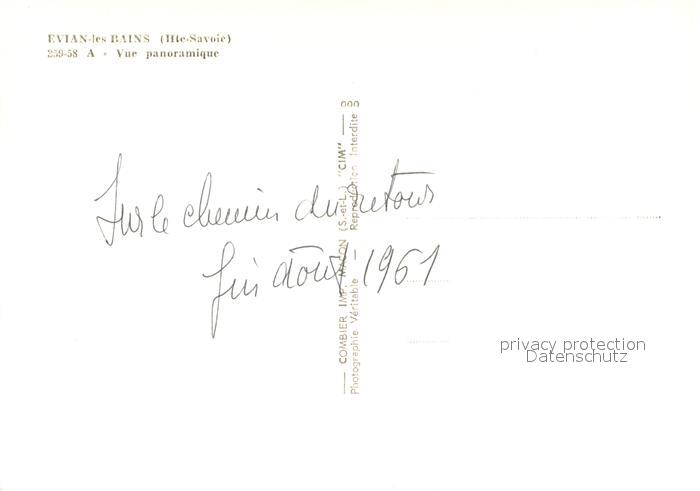 EVIAN-les BAINS (Hte-Savoie)
259-58 A - Vue panoramique
COMBIER IMP. MACON (S.-et-L.) "CIM"
Photographie Véritable — Reproduction Interdite
Sur le chemin du retour
fin août 1961
privacy protection
Datenschutz